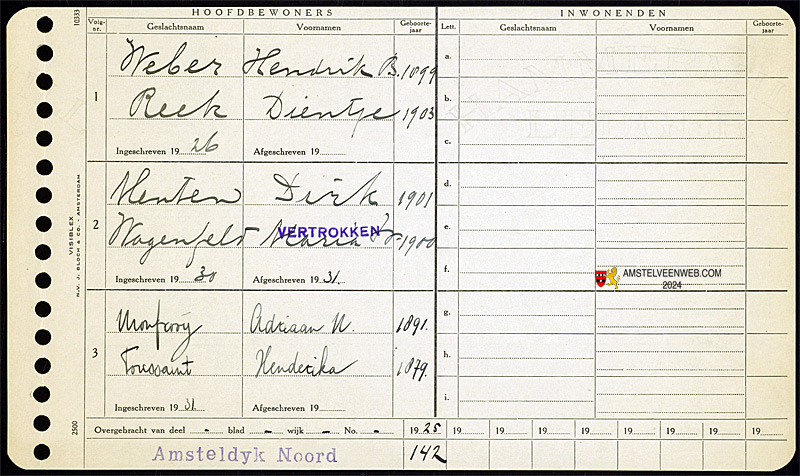 HOOFDBEWONERS
INWONENDEN
Volg-nr. Geslachtsnaam Voornamen Geboorte-jaar Lett. Geslachtsnaam Voornamen Geboorte-jaar
10333
1
Weber Hendrik B. 1899
Reek Dientje 1903
Ingeschreven 1926 Afgeschreven 19
2
Henten Dirk 1901
Wagenfeld Maria 1900
VERTROKKEN
Ingeschreven 1930 Afgeschreven 1931.
3
Monfrooy Adriaan N. 1891.
Toussaint Henderika 1879.
Ingeschreven 1931. Afgeschreven 19
a.
b.
c.
d.
e.
f.
g.
h.
i.
AMSTELVEENWEB.COM
2024
VISIBLEX
N.V. J. BLOCH & CO. AMSTERDAM
2500
Overgebracht van deel - blad - wijk - No. - 1925 19 19 19 19 19 19 19 19
Amsteldyk Noord 142